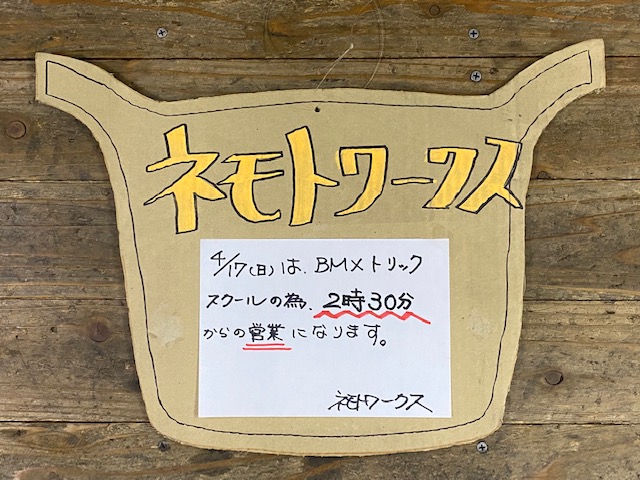 ネモトワークス
4/17(日)は、BMXトリック
スクールの為、2時30分
からの営業になります。
ネモトワークス